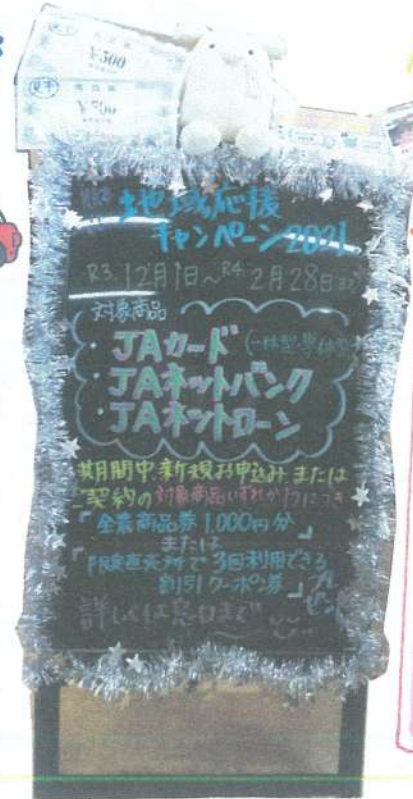 見本
¥500
地域応援
キャンペーン2021
R3.12月1日～R4.2月28日まで
対象商品
・JAカード(一体型・単体型)
・JAネットバンク
・JAネットローン
期間中、新規お申込み、または
ご契約の対象商品いずれか1つにつき
「全農商品券1,000円分」
または
「農産直売所で3回利用できる
割引クーポン券」プレゼント
詳しくは窓口まで